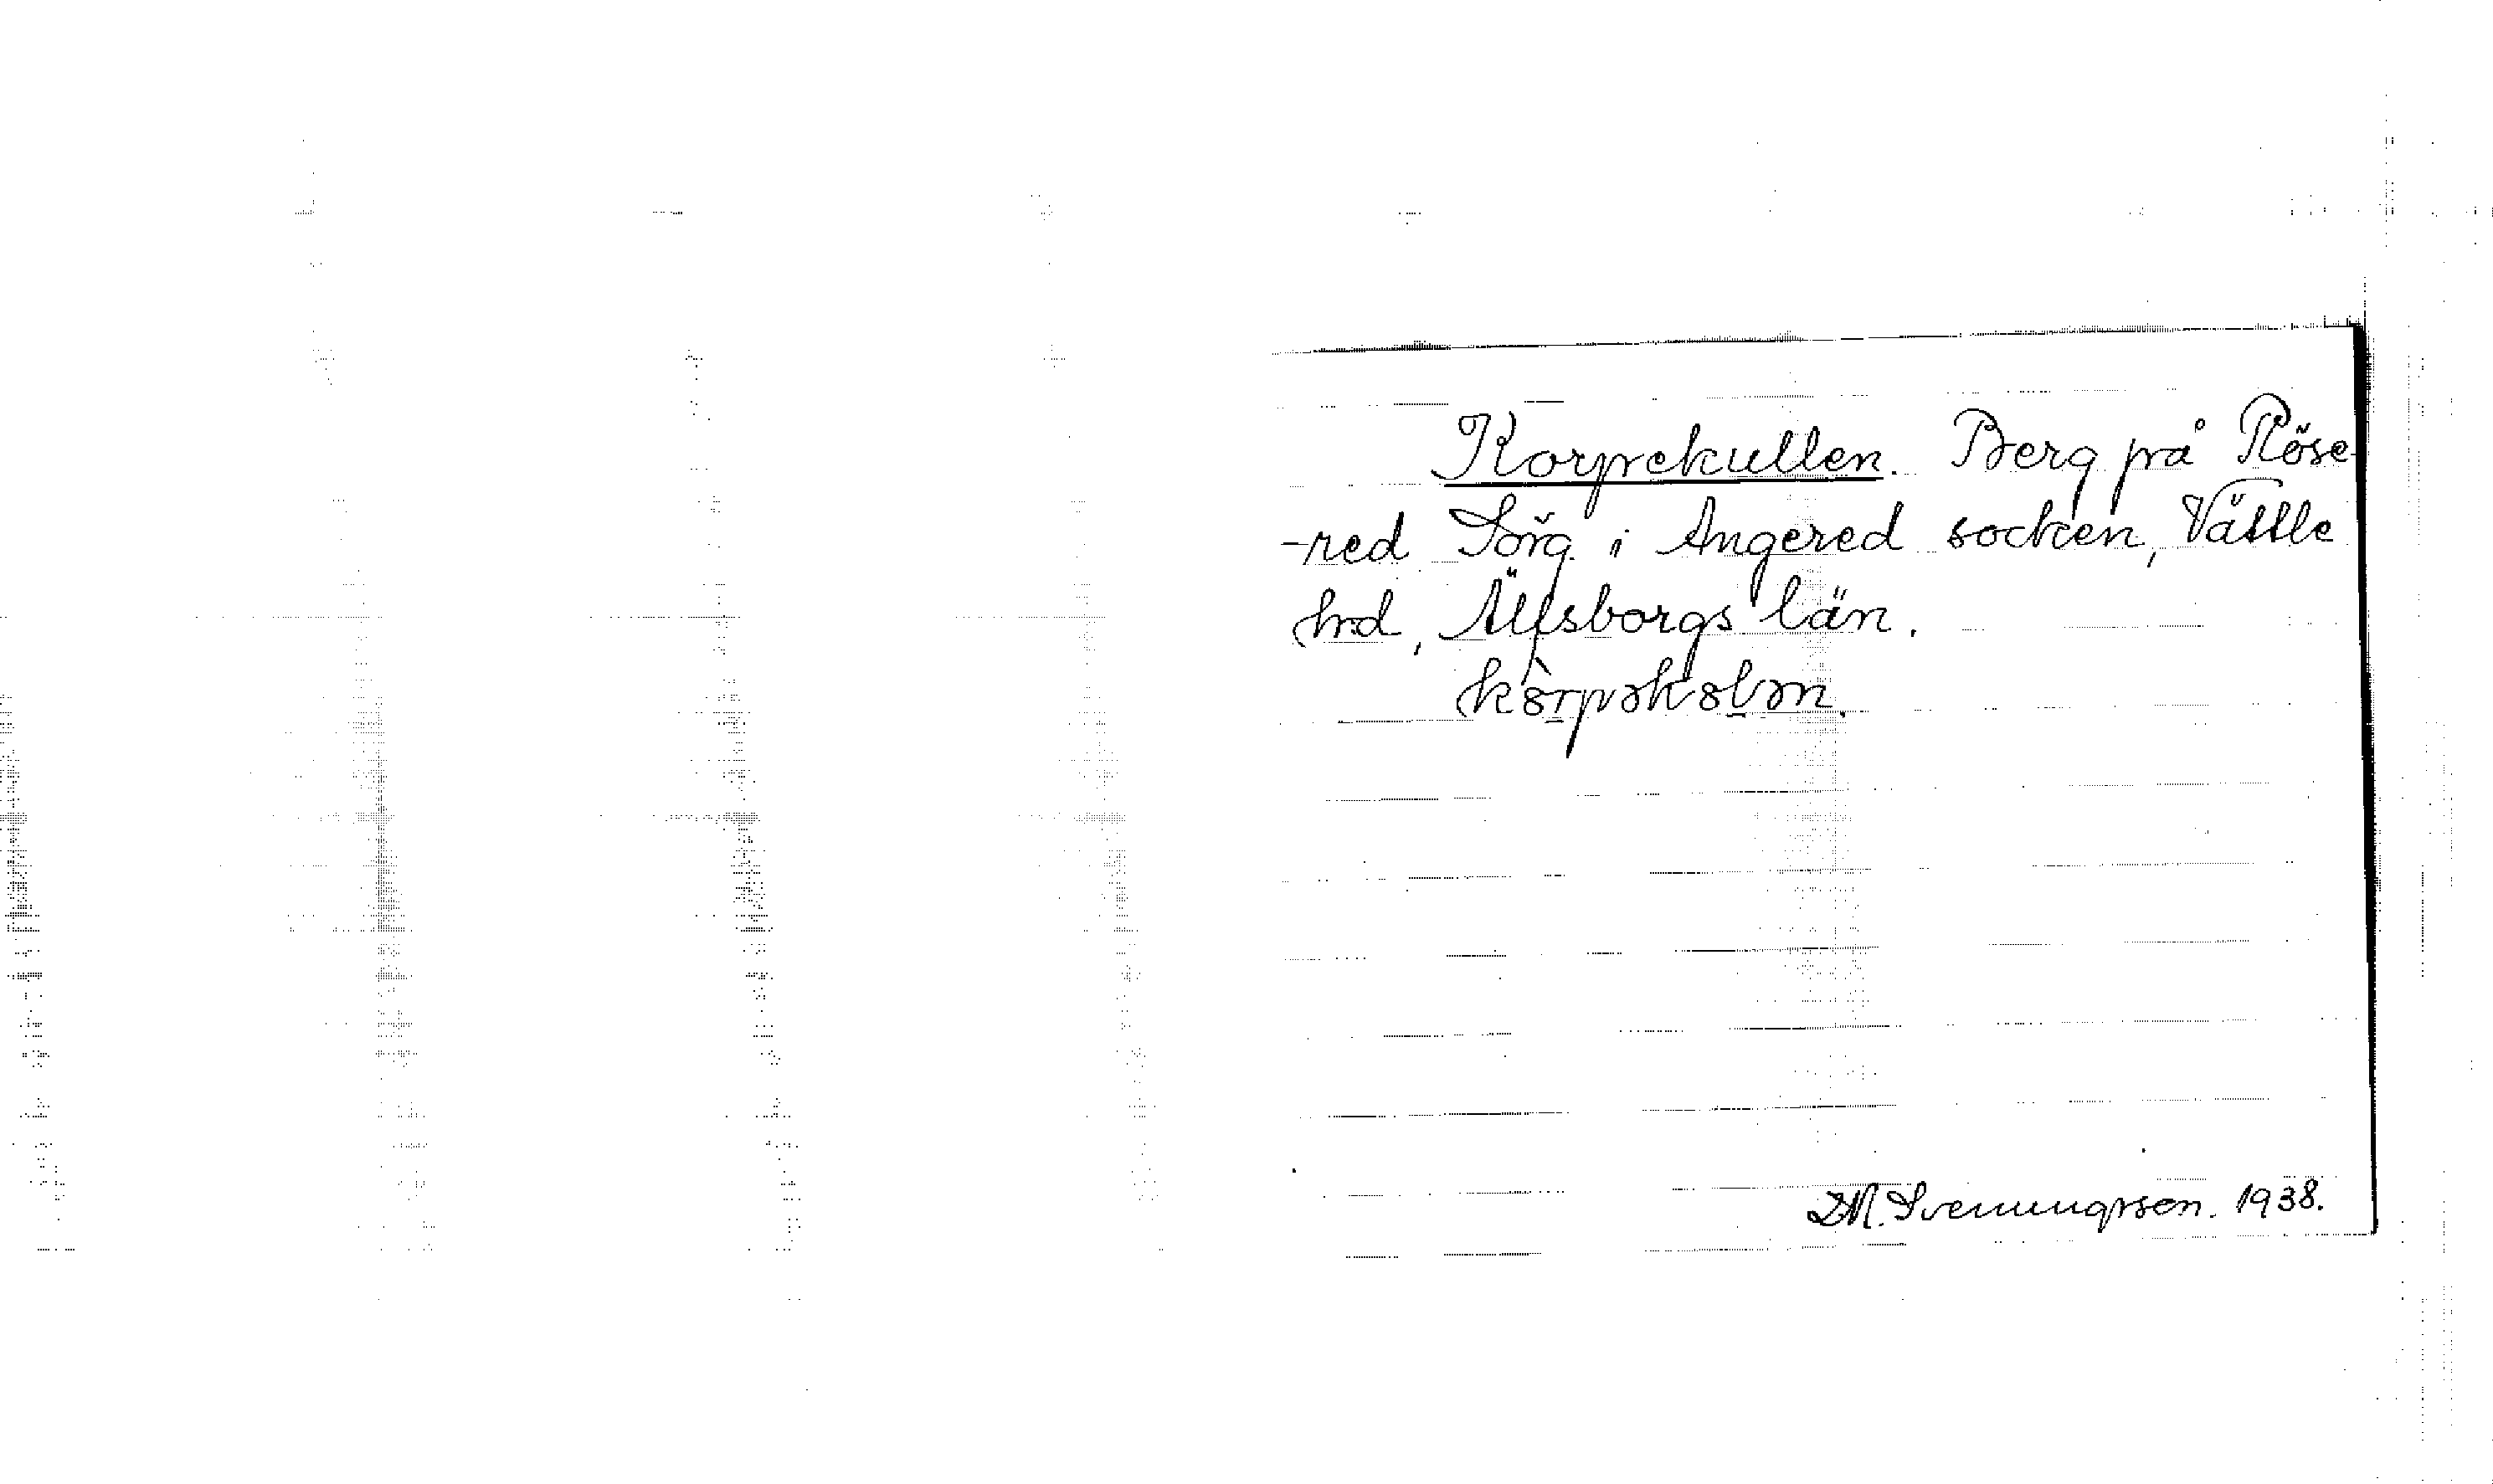 Korpekullen. Berg på Röse-
-red Sörg. i Angered socken, Vättle
hrd, Älfsborgs län.
kòrpəkolən.
M. Svenungsson. 1938.